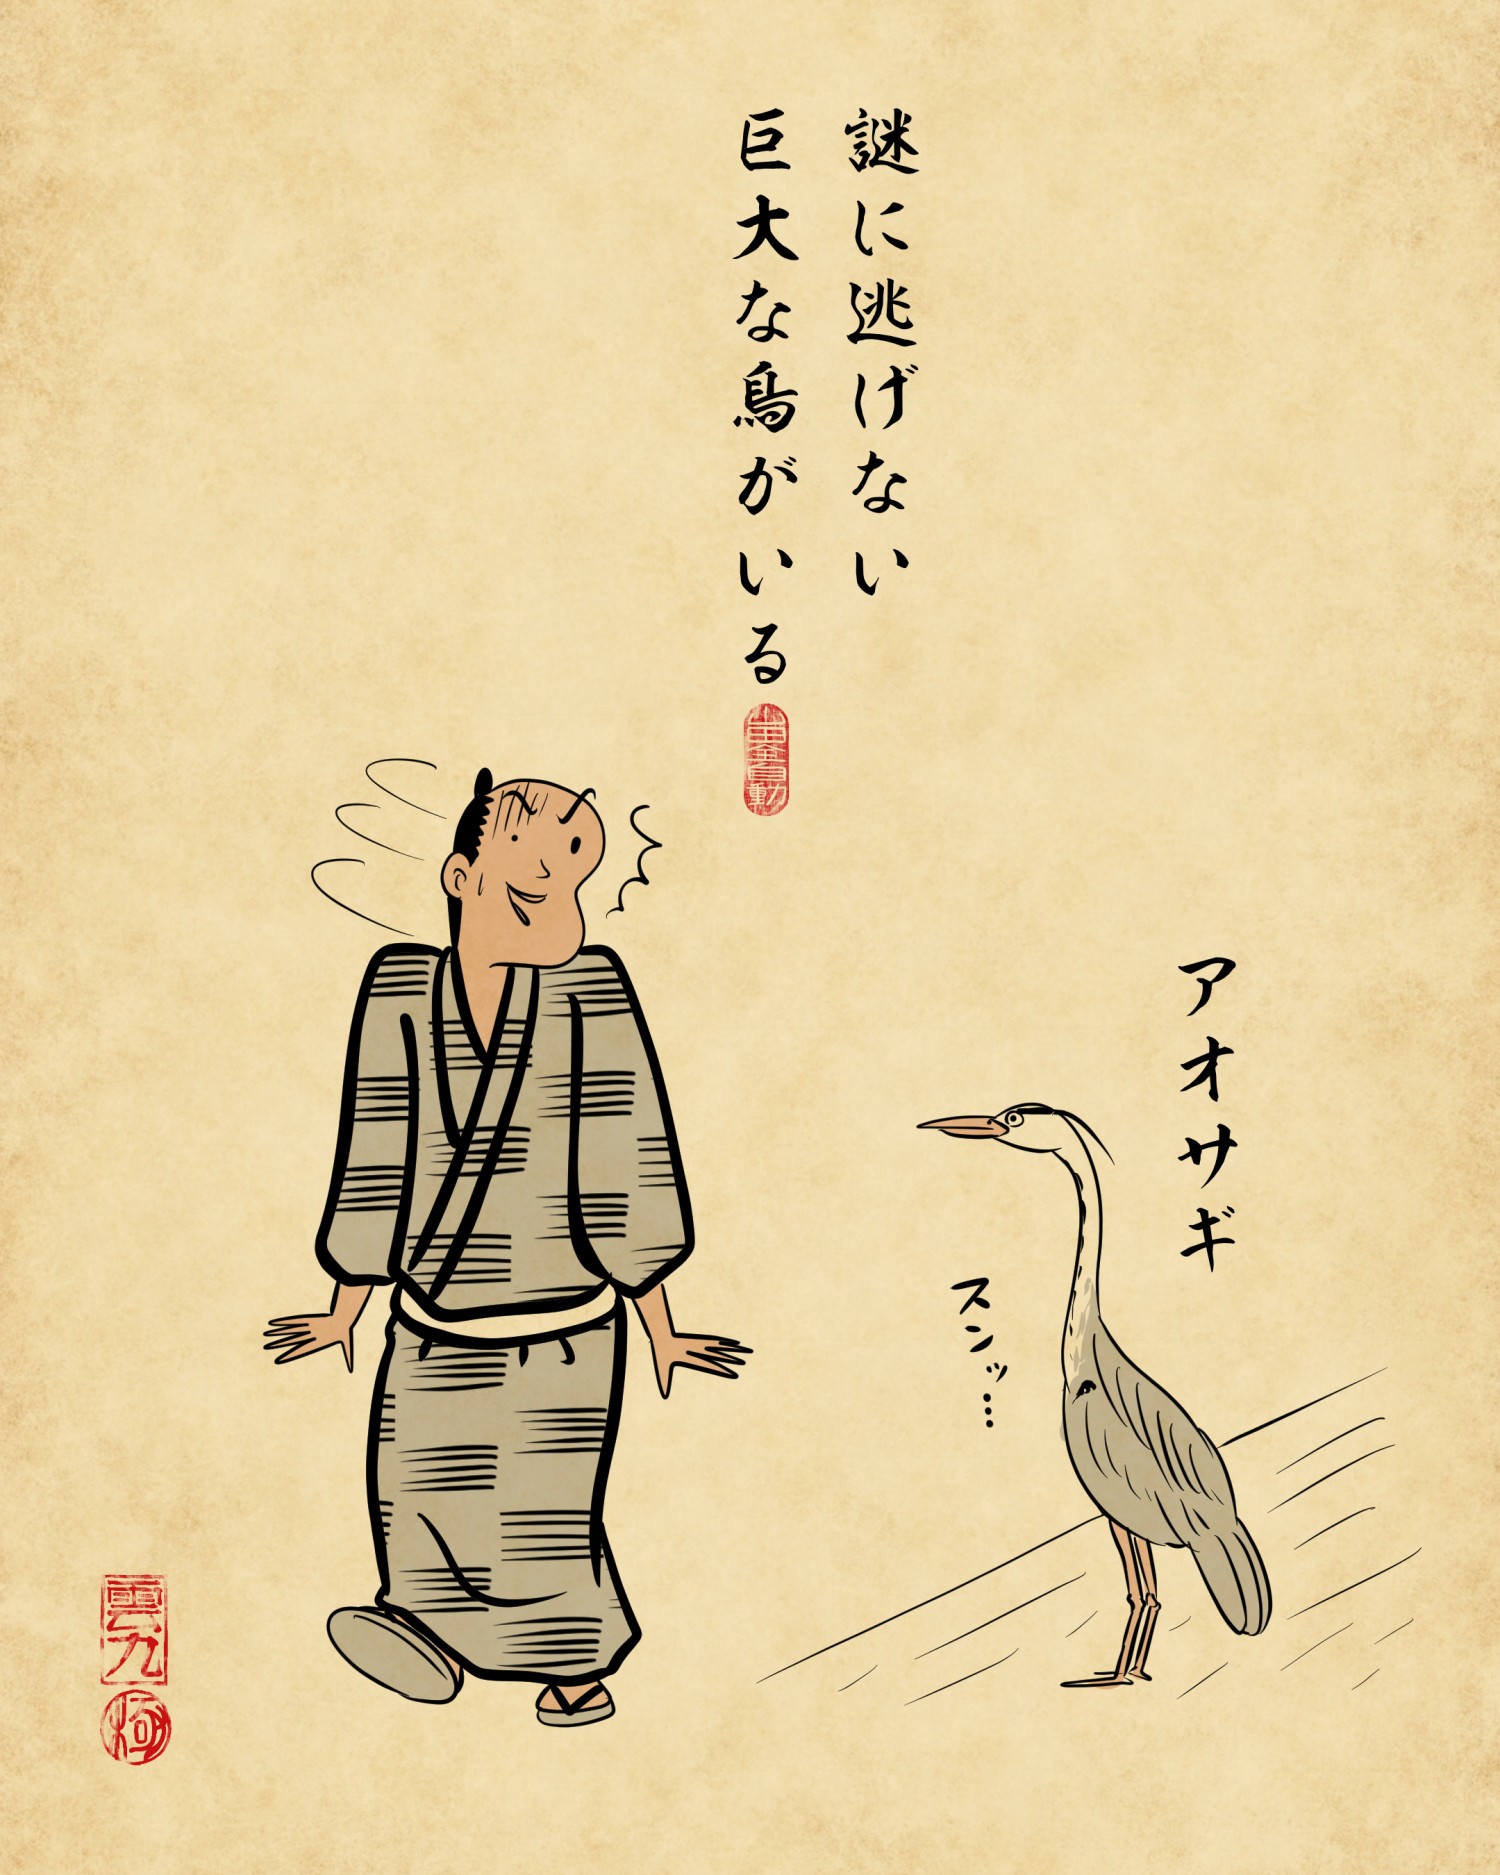 謎に逃げない
巨大な鳥がいる
アオサギ
スンッ…